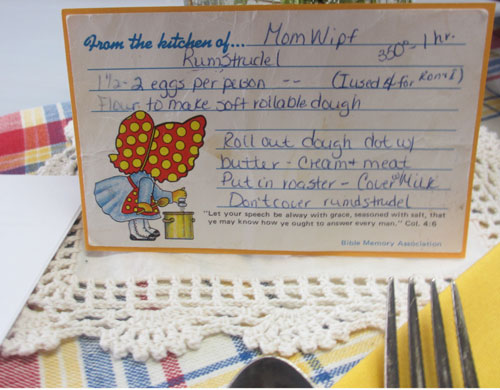 From the kitchen of... Mom Wipf
350° - 1 hr.
Rumstrudel
1½ - 2 eggs per person -- (I used 4 for Ron & I)
Flour to make soft rollable dough
Roll out dough dot w/
butter - Cream + meat
Put in roaster - Cover w/ Milk
Don't cover rumstrudel
"Let your speech be alway with grace, seasoned with salt, that
ye may know how ye ought to answer every man." Col. 4:6
Bible Memory Association